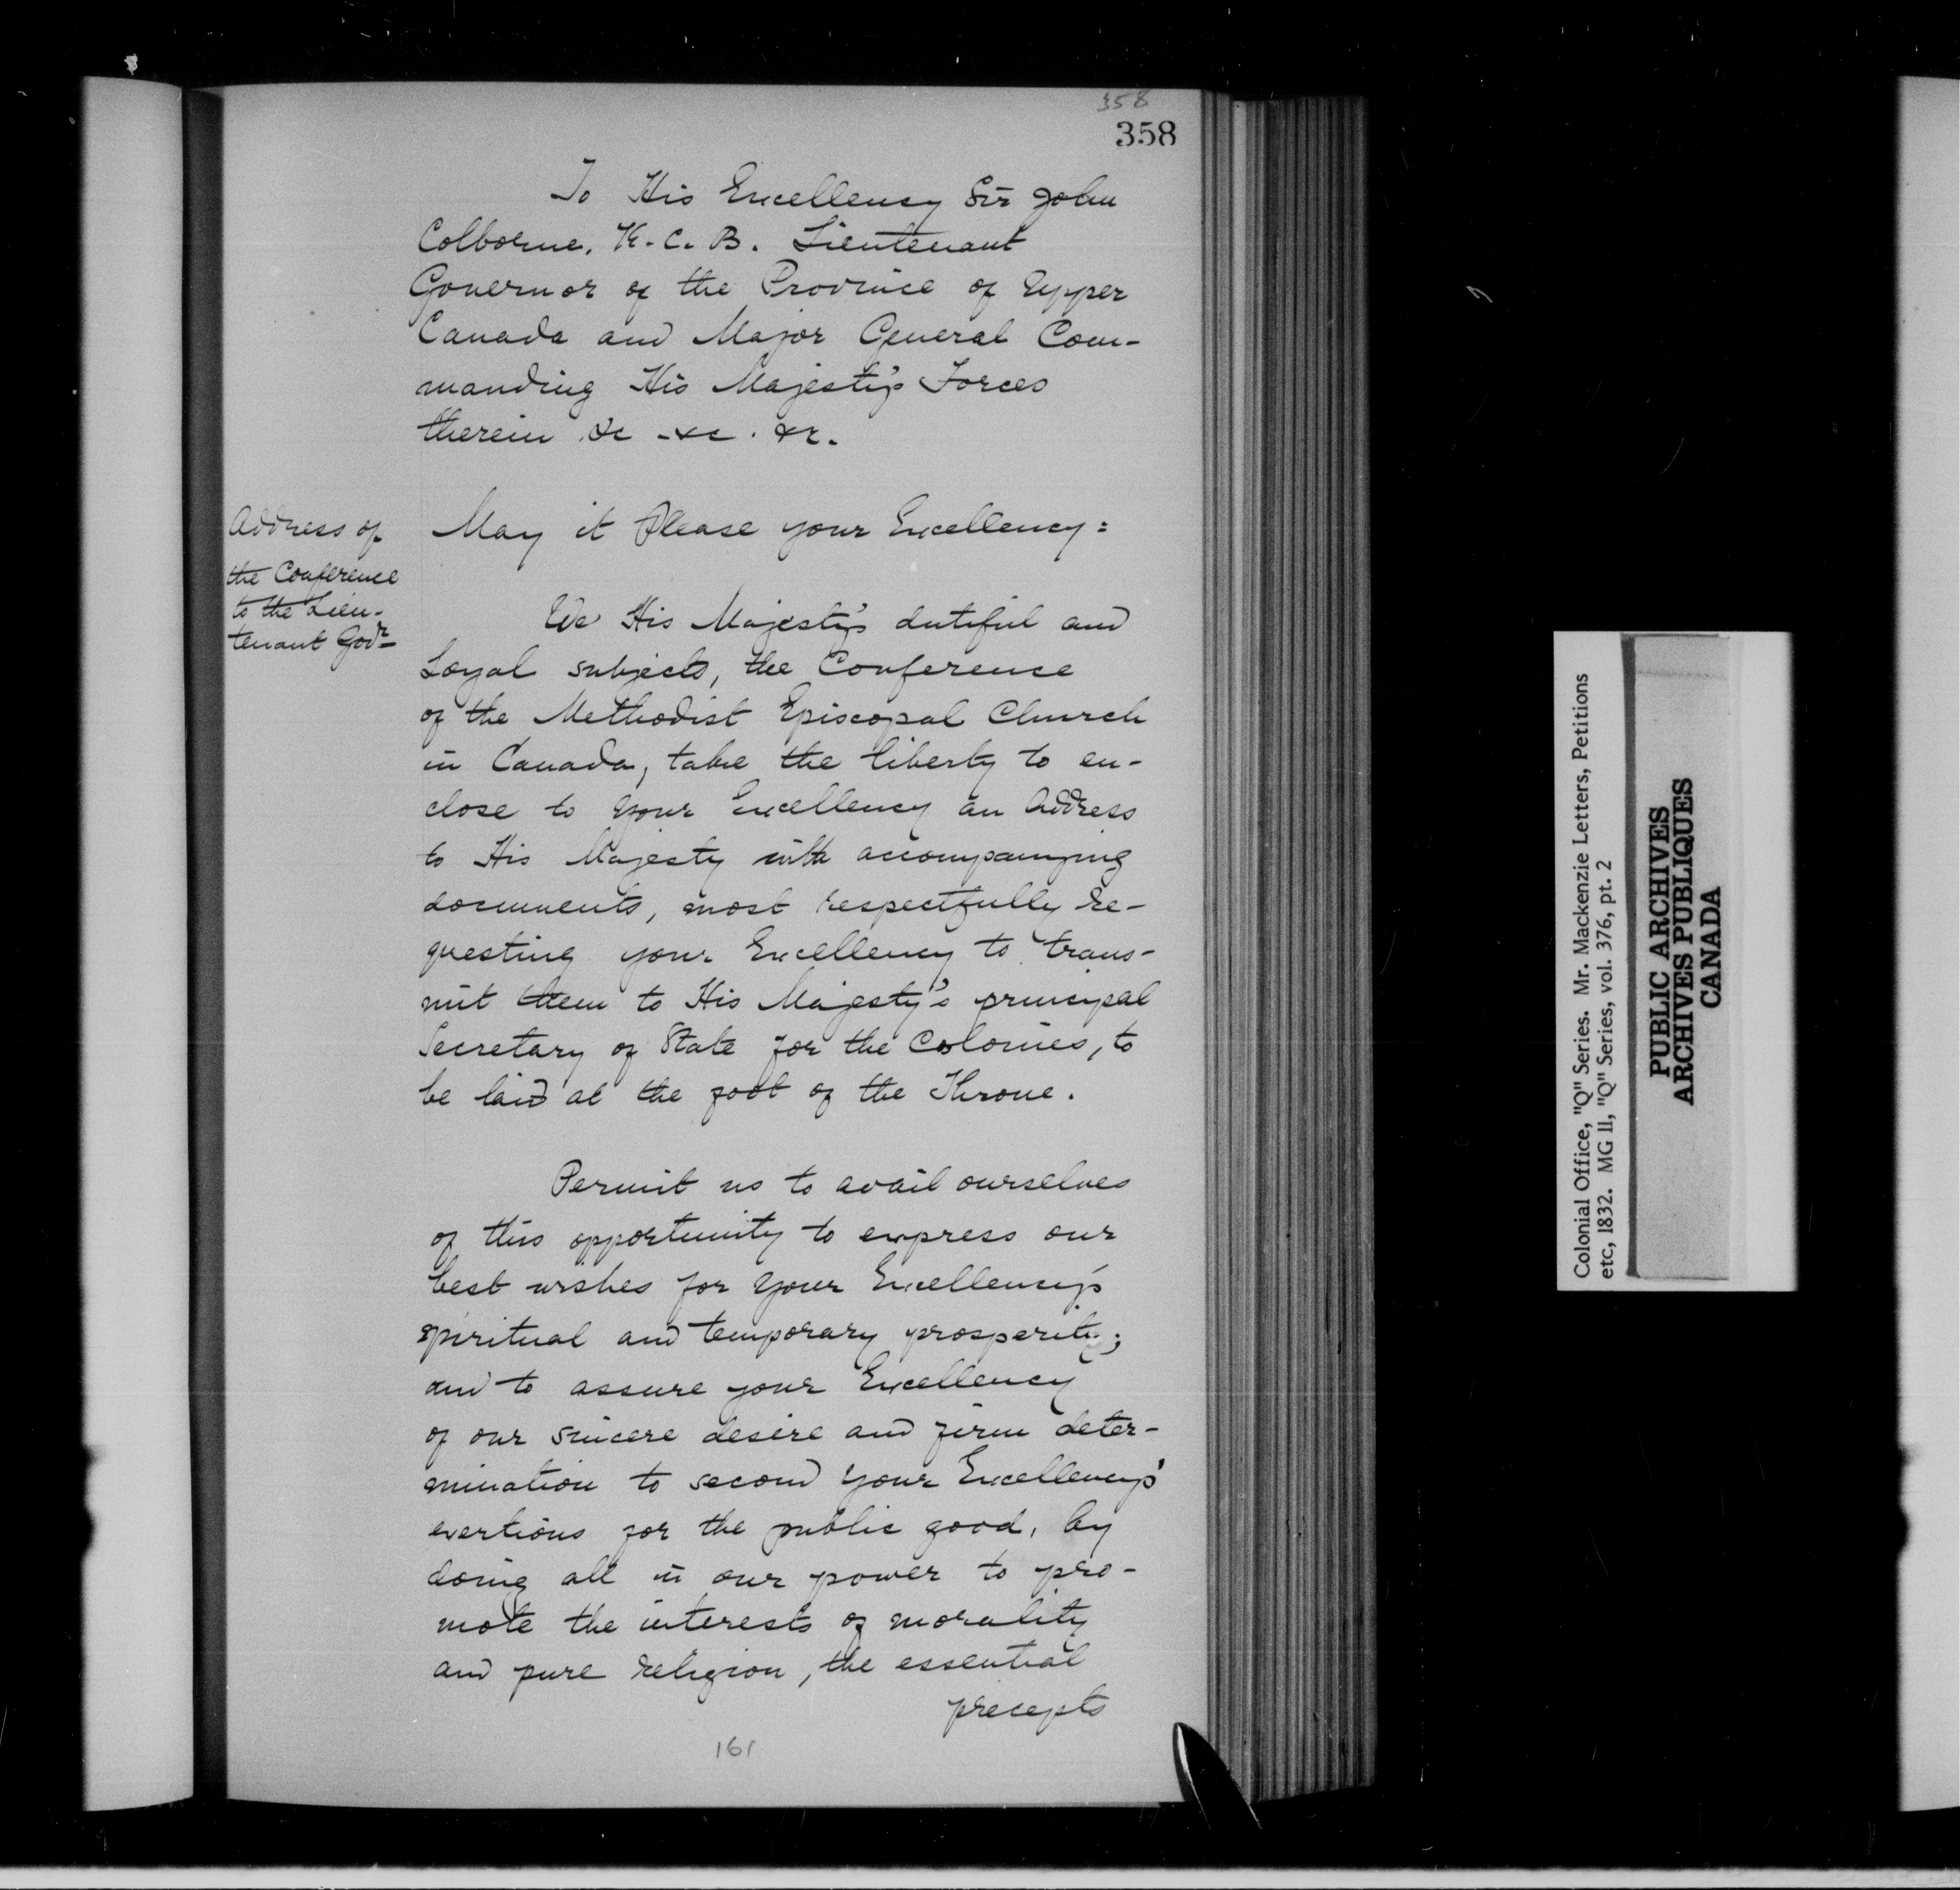 358
358
To His Excellency Sir John
Colborne, K.C.B. Lieutenant
Governor of the Province of Upper
Canada and Major General Com-
manding His Majesty's Forces
therein &c - &c. &c.
Address of
the Conference
to the Lieu-
tenant Govr
May it Please your Excellency:
We His Majesty's dutiful and
Loyal subjects, the Conference
of the Methodist Episcopal Church
in Canada, take the liberty to en-
close to your Excellency an Address
to His Majesty with accompanying
documents, most respectfully re-
questing your Excellency to trans-
mit them to His Majesty's principal
Secretary of State for the Colonies, to
be laid at the foot of the Throne.
Permit us to avail ourselves
of this opportunity to express our
best wishes for your Excellency's
spiritual and temporary prosperity;
and to assure your Excellency
of our sincere desire and firm deter-
mination to second your Excellency's
exertions for the public good, by
doing all in our power to pro-
mote the interests of morality
and pure religion, the essential
precepts
161
Colonial Office, "Q" Series. Mr. Mackenzie Letters, Petitions
etc, 1832. MG 11, "Q" Series, vol. 376, pt. 2
PUBLIC ARCHIVES
ARCHIVES PUBLIQUES
CANADA